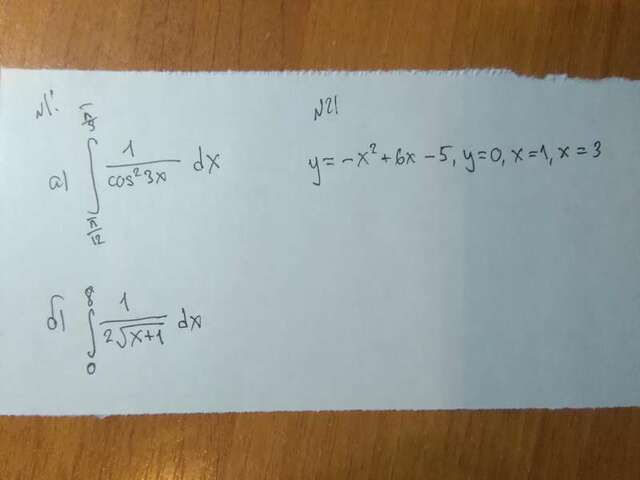 №1.
а) ∫ 1/cos²3x dx
π/12
б) ∫₀⁸ 1/(2√(x+1)) dx
№2.
y = -x² + 6x - 5, y = 0, x = 1, x = 3